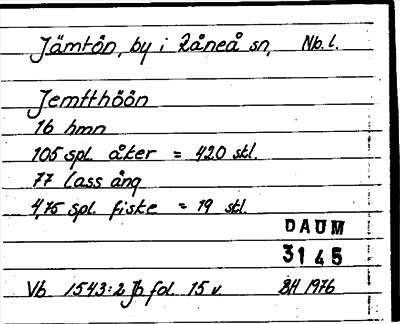 Jämtön, by i Råneå sn, Nb. l.
Jemtthöön
16 hmn
105 spl. åker = 420 skl.
77 lass äng
4,75 spl. fiske = 19 skl.
DAUM
3145
Vb 1543:2 Jb fol. 15 v. BH 1976